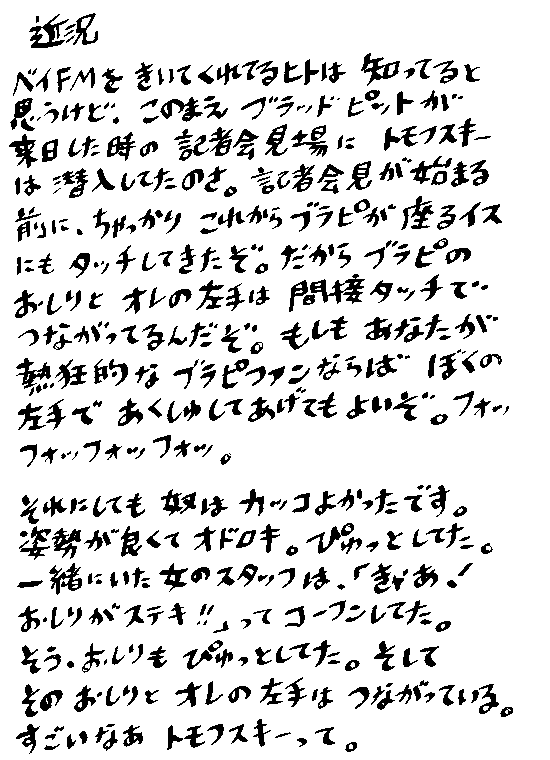 近況
ベイFMを きいてくれてるヒトは 知ってると
思うけど、このまえ ブラッド ピットが
来日した時の 記者会見場に トモフスキー
は 潜入してたのさ。記者会見が始まる
前に、ちゃっかり これからブラピが 座るイス
にも タッチしてきたぞ。だから ブラピの
おしりと オレの左手は 間接タッチで
つながってるんだぞ。もしも あなたが
熱狂的な ブラピファンならば ぼくの
左手で あくしゅしてあげてもよいぞ。フォッ
フォッフォッフォッ。
それにしても 奴は カッコよかったです。
姿勢が良くて オドロキ。ぴゅっとしてた。
一緒にいた女のスタッフは、「きゃあ!
おしりがステキ!!」って コーフンしてた。
そう、おしりも ぴゅっとしてた。そして
その おしりと オレの左手は つながっている。
すごいなあ トモフスキーって。